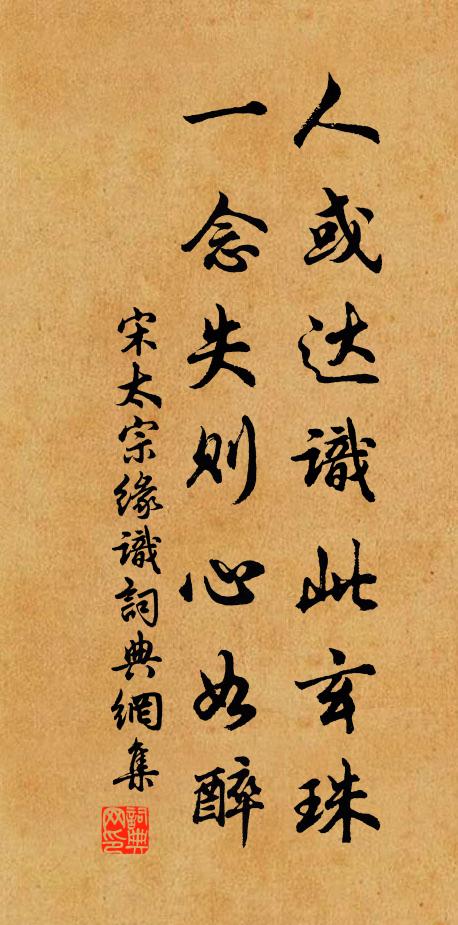 人或达識此玄珠
一念失则心如醉
宋太宗缘識詞典網集
詞典網印